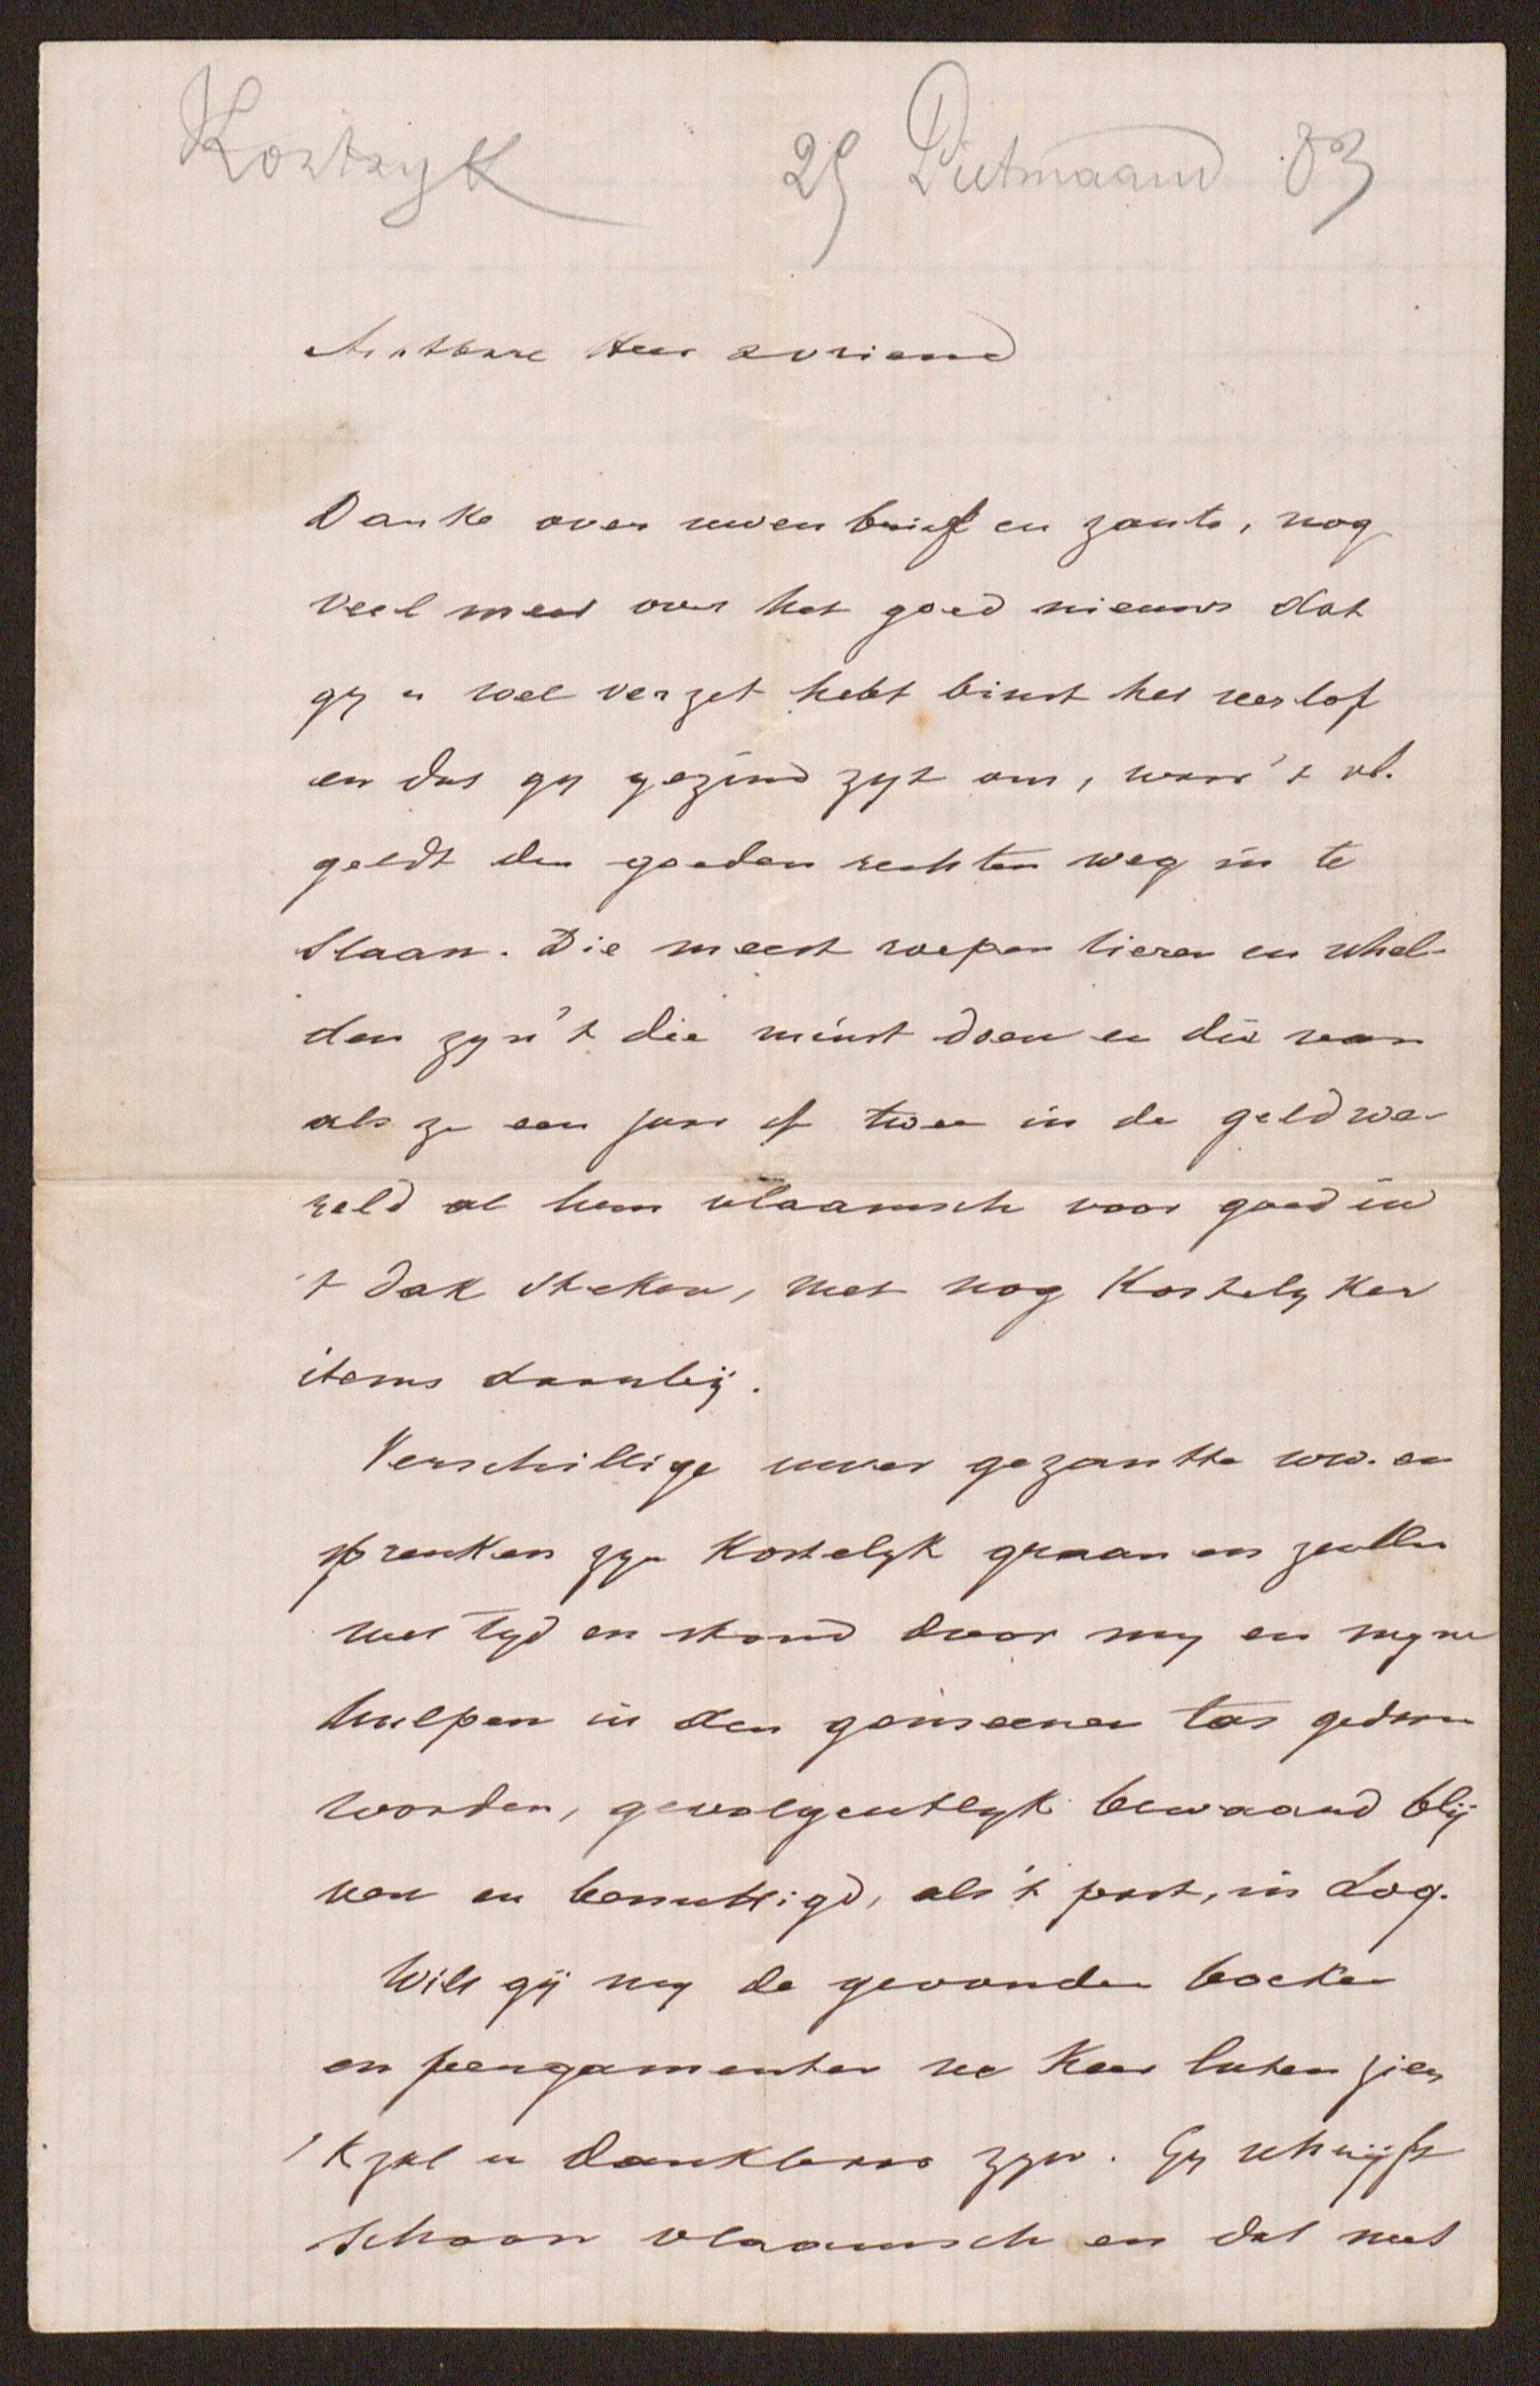 Kortryk 29 Pietmaand 83
Achtbare Heer & vriend
Danke over uwen brief en zante, nog
veel meer over het goed nieuws dat
gy u wel verzet hebt binst het verlof
en dat gy gezind zyt om, waar 't
geldt den goeden rechten weg in te
slaan. Die meest roepen tieren en schel-
den zyn 't die minst doen en die
als ze een jaar of twee in de geldwe-
reld al hun vlaamsch voor goed in
't dak steken, met nog kostelyker
items daarby.
Verschillige uwer gezantte ww. en
spreuken zyn kostelyk graan en zullen
met tyd en stond door my en myne
hulpen in den gemeenen tas gedaan
worden, gevolgentlyk bewaard blij-
ven en benuttigd, als 't past, in Loq.
Wilt gij my de gevonden boeken
en pergamenten ne keer laten zien
'k zal u dankbaar zyn. Gy schrijft
schoon vlaamsch en dat met